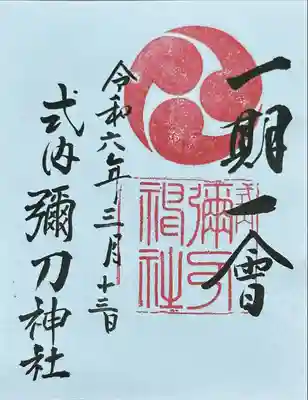 一期一會
令和六年三月十三日
式内彌刀神社